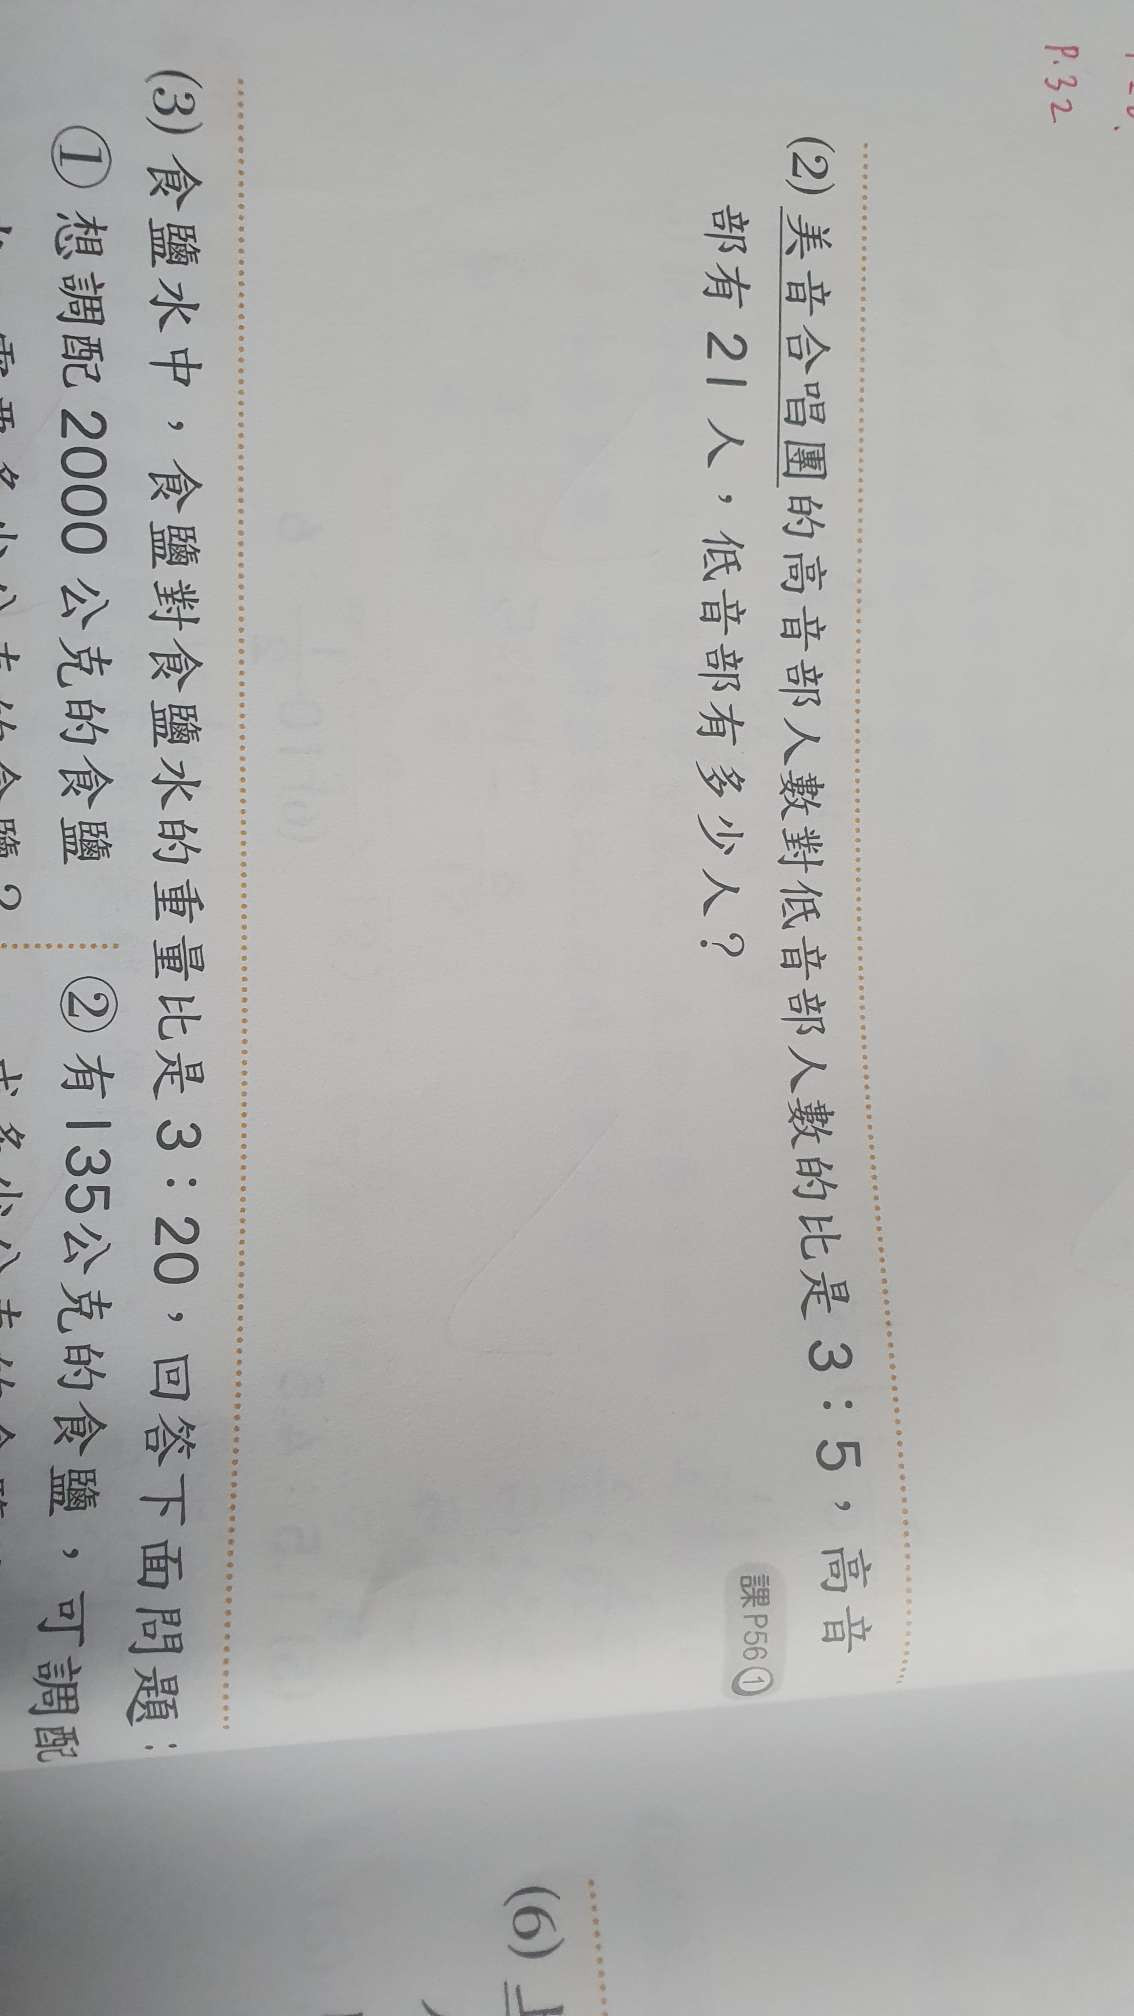 P.32
(2) 美音合唱團的高音部人數對低音部人數的比是 3：5，高音
部有 21 人，低音部有多少人？
課P56①
(3) 食鹽水中，食鹽對食鹽水的重量比是 3：20，回答下面問題：
① 想調配 2000 公克的食鹽
② 有135公克的食鹽，可調配
(6)